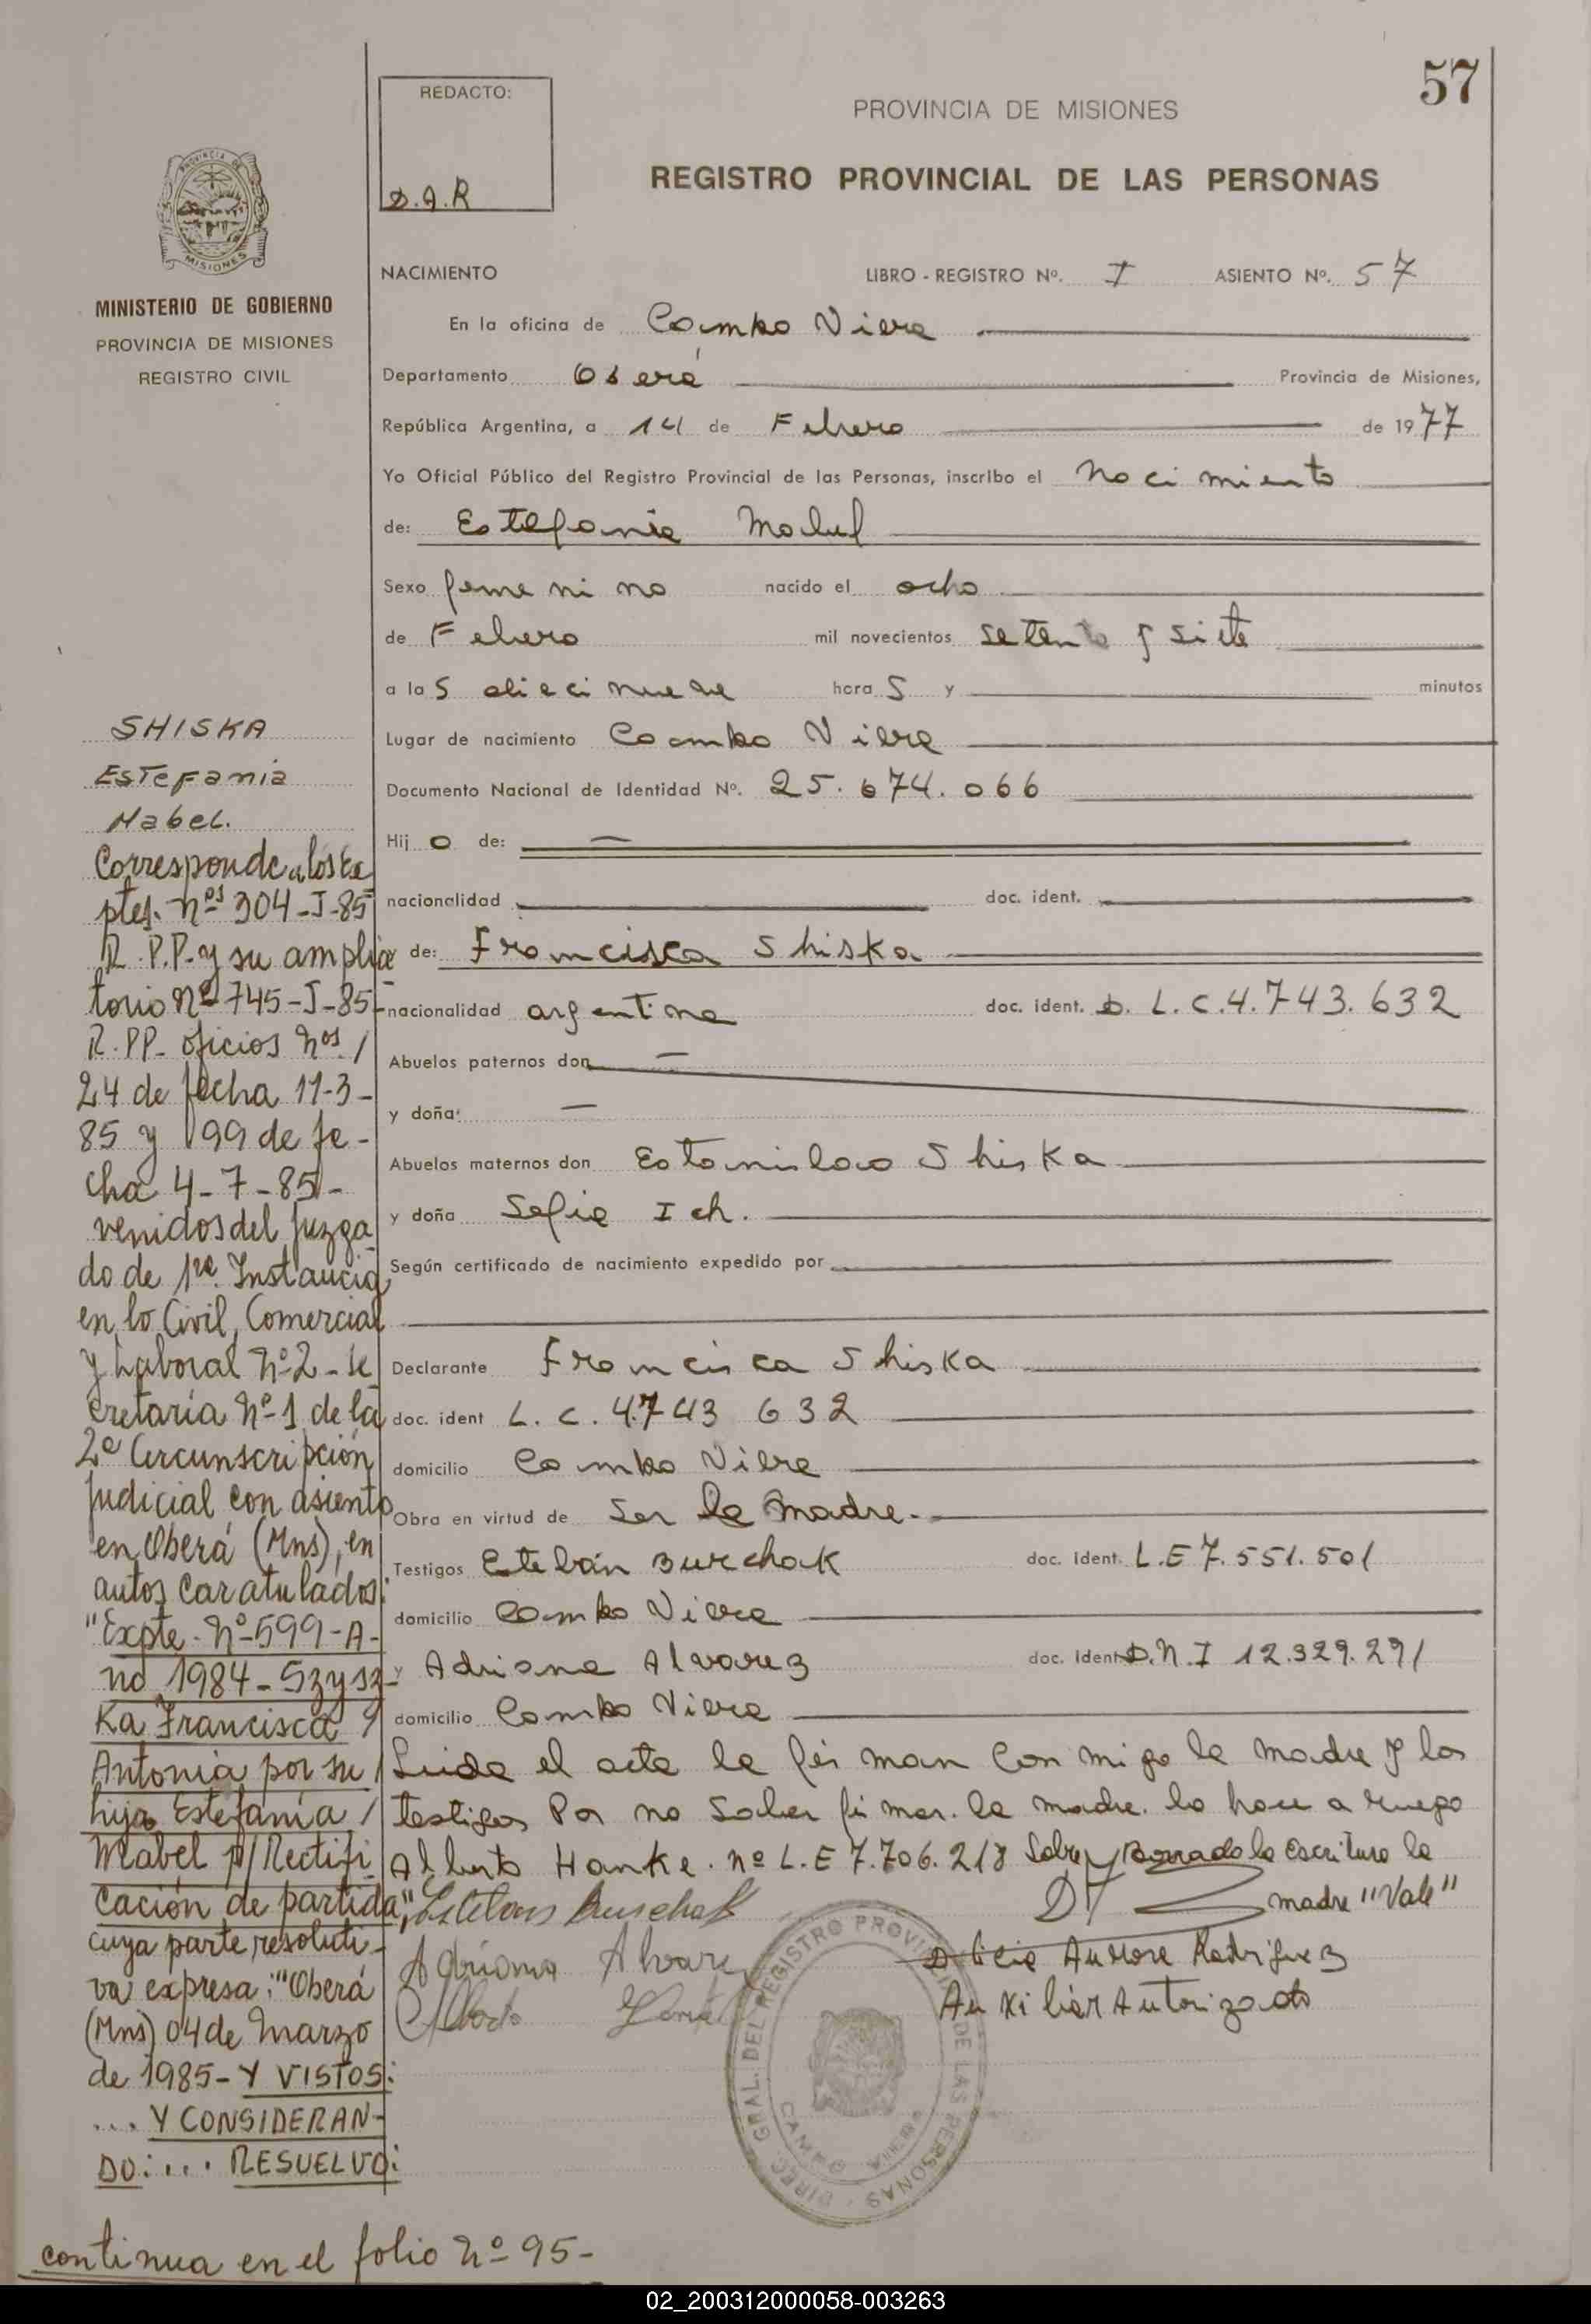 57
REDACTO:
D.A.R
PROVINCIA DE MISIONES
REGISTRO PROVINCIAL DE LAS PERSONAS
PROVINCIA DE
MISIONES
MINISTERIO DE GOBIERNO
PROVINCIA DE MISIONES
REGISTRO CIVIL
NACIMIENTO LIBRO - REGISTRO Nº. I ASIENTO Nº. 57
En la oficina de Campo Viera
Departamento Oberá Provincia de Misiones,
República Argentina, a 14 de Febrero de 1977
Yo Oficial Público del Registro Provincial de las Personas, inscribo el Nacimiento
de: Estefania Mabel
Sexo femenino nacido el ocho
de Febrero mil novecientos setenta y siete
a las diecinueve horas y minutos
Lugar de nacimiento Campo Viera
Documento Nacional de Identidad Nº. 25.674.066
Hijo de: —
nacionalidad doc. ident.
de: Francisca Shiska
nacionalidad argentina doc. ident. D. L.C.4.743.632
Abuelos paternos don —
y doña: —
Abuelos maternos don Estanislao Shiska
y doña Sofia Ich.
Según certificado de nacimiento expedido por
Declarante Francisca Shiska
doc. ident L.C. 4.743 632
domicilio Campo Viera
Obra en virtud de Ser la madre.
Testigos Esteban Burchak doc. Ident. L.E 7.551.501
domicilio Campo Viera
y Adriana Alvarez doc. Ident D.N.I 12.329.291
domicilio Campo Viera
Leida el acta la firman conmigo la madre y los
testigos Por no Saber firmar. la madre. lo hace a ruego
Alberto Hanke. nº L.E 7.706.218 Sobre y Borrado la escritura la
madre "Vale"
Esteban Burchak
Adriana Alvarez
Alberto
Delicia Aurora Rodriguez
Auxiliar Autorizado
DIREC. GRAL. DEL REGISTRO PROVINCIAL DE LAS PERSONAS
CAMPO VIERA
SHISKA
Estefania
Mabel.
Corresponde a los Ex
ptes. nºs 304-J-85
R.P.P. y su amplia
torio Nº 745-J-85-
R.PP- oficios Nos. /
24 de fecha 11-3-
85 y 199 de fe-
cha 4-7-85-
venidos del Juzga
do de 1ra. Instancia
en lo Civil, Comercial
y Laboral Nº 2 - Se
cretaría Nº 1 de la
2ª Circunscripción
Judicial con asiento
en Oberá (Mns), en
autos caratulados:
"Expte. Nº 599-A-
ño 1984-Szysz-
Ka Francisca
Antonia por su /
hija Estefanía /
Mabel p/ Rectifi
cación de partida",
cuya parte resoluti-
va expresa: "Oberá
(Mns) 04 de Marzo
de 1985- Y VISTOS:
... Y CONSIDERAN-
DO: ... RESUELVO:
continua en el folio Nº 95-
02_200312000058-003263